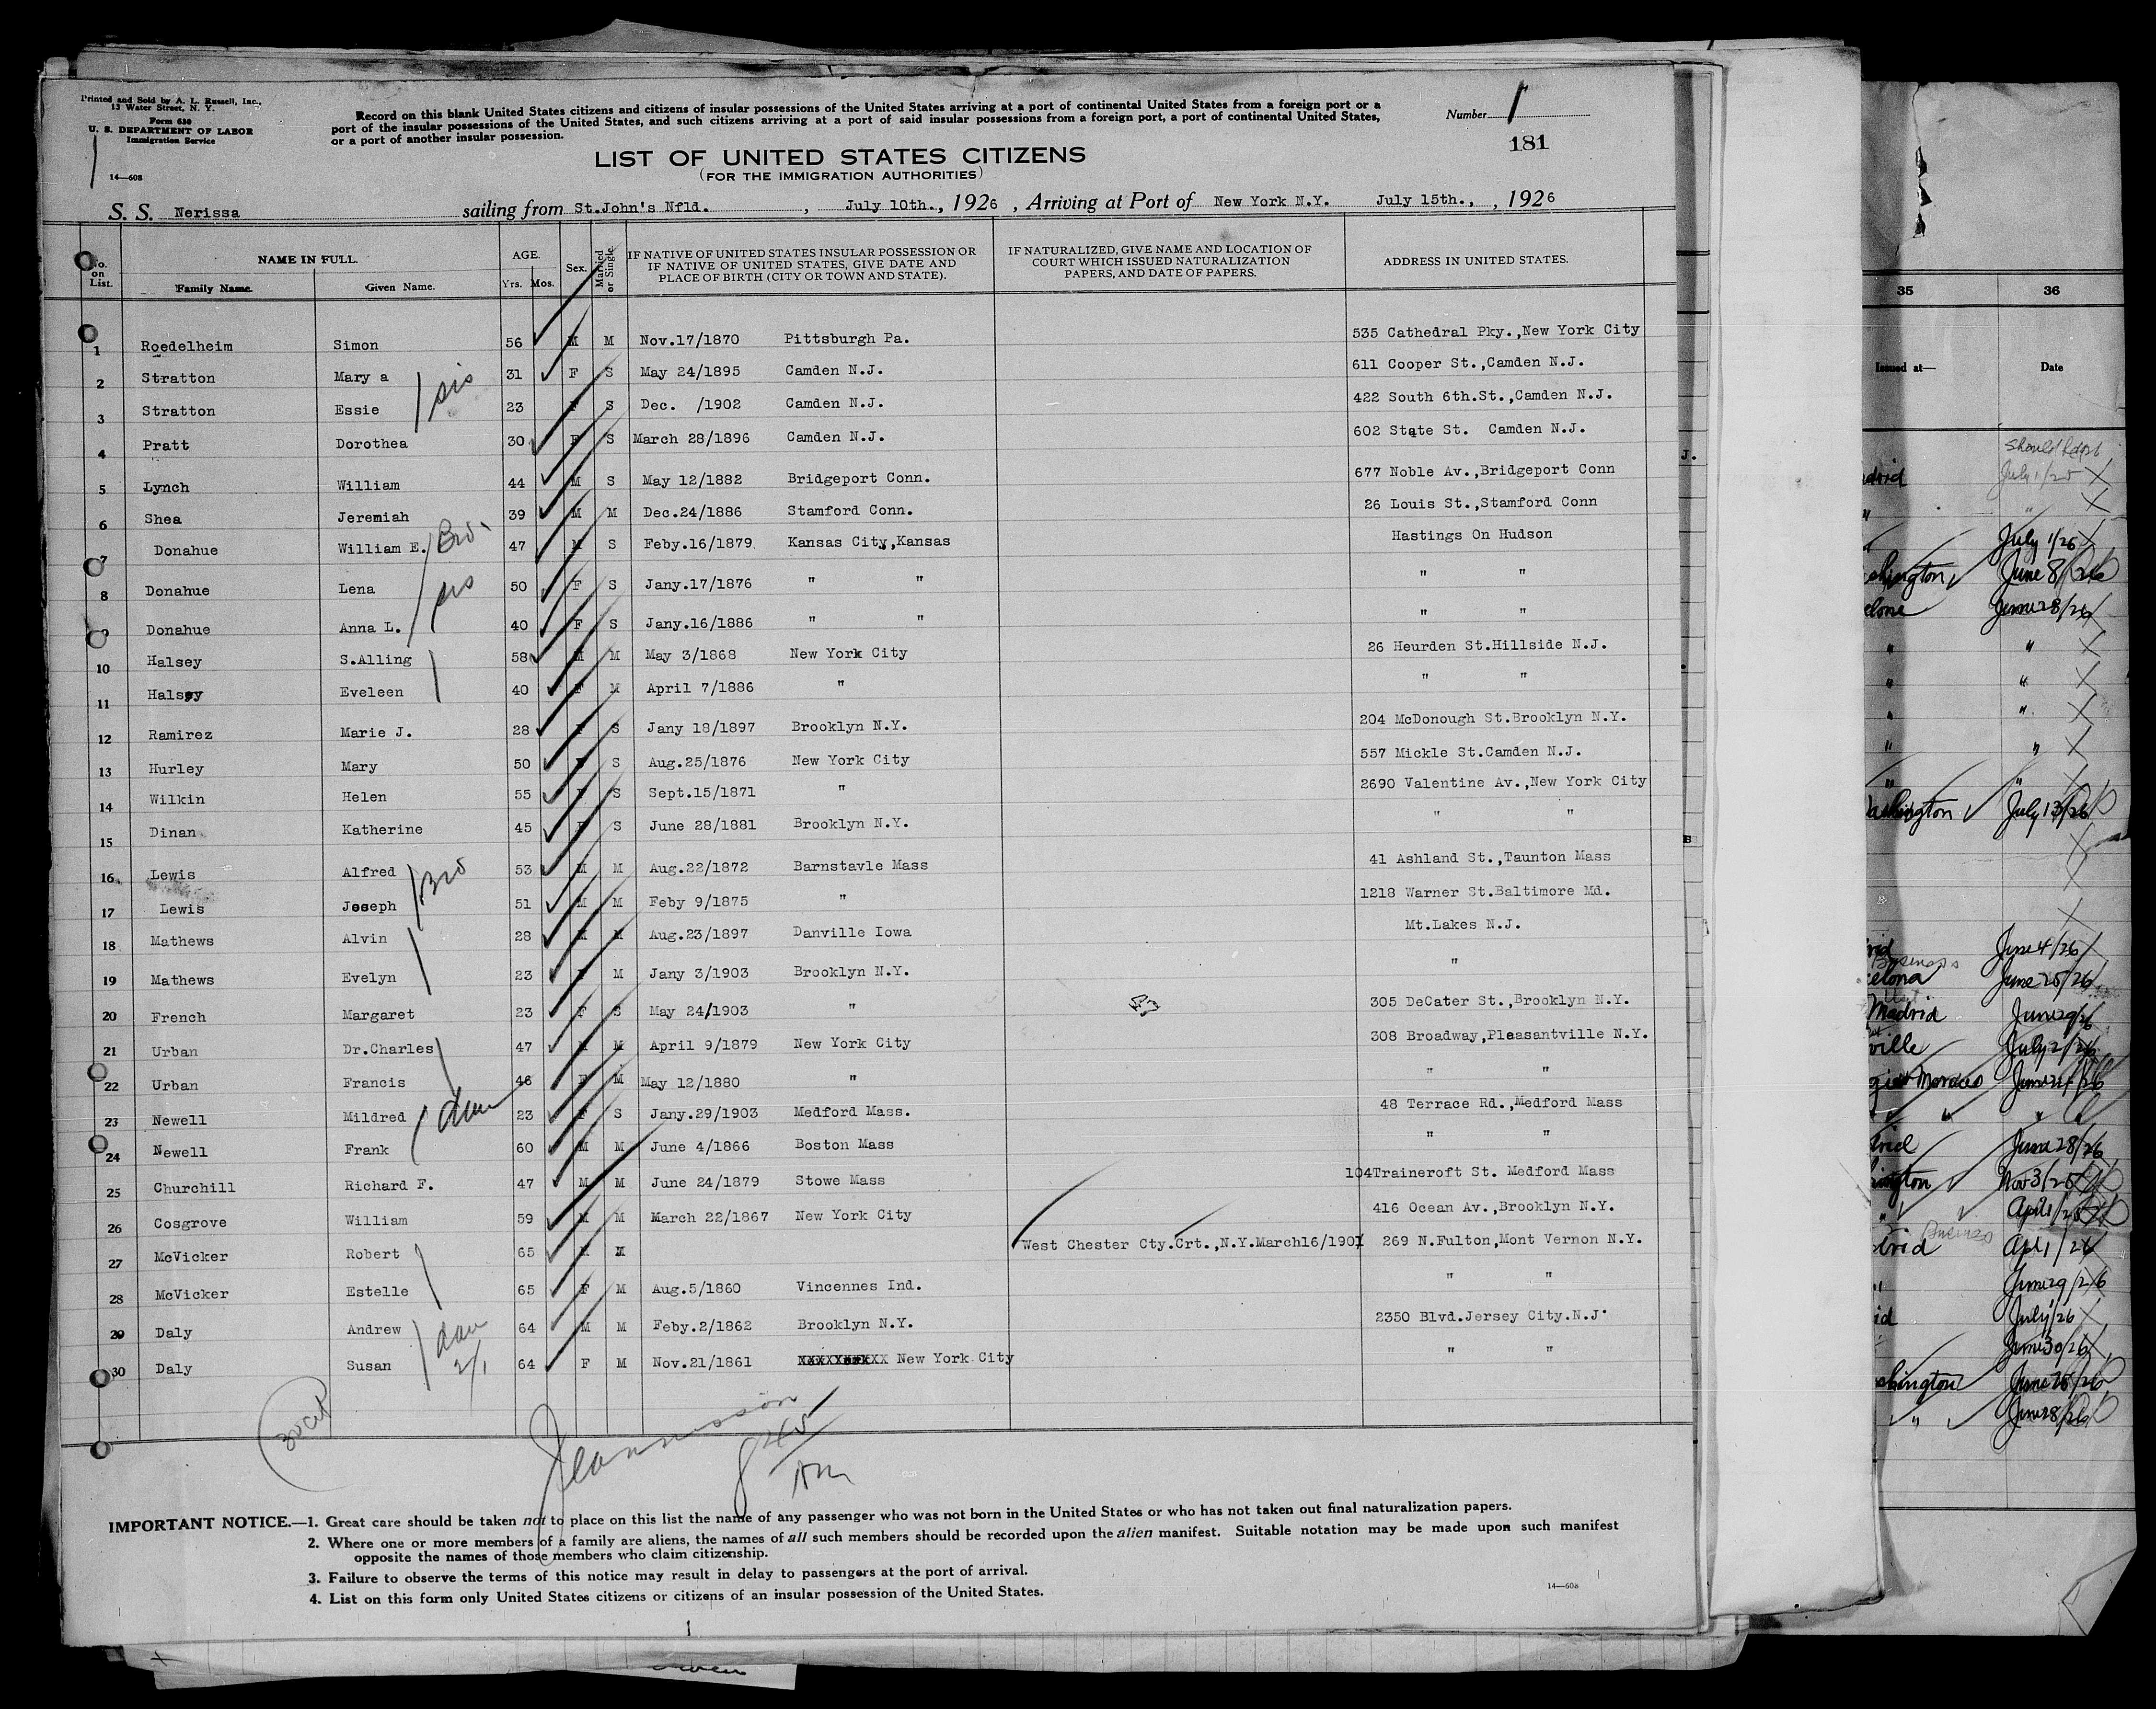 Printed and Sold by A. L. Russell, Inc.,
13 Water Street, N. Y.
Form 630
U. S. DEPARTMENT OF LABOR
Immigration Service
14—608
Record on this blank United States citizens and citizens of insular possessions of the United States arriving at a port of continental United States from a foreign port or a
port of the insular possessions of the United States, and such citizens arriving at a port of said insular possessions from a foreign port, a port of continental United States,
or a port of another insular possession.
Number 1
181
LIST OF UNITED STATES CITIZENS
(FOR THE IMMIGRATION AUTHORITIES)
S. S. Nerissa sailing from St.John's Nfld. , July 10th., 1926 , Arriving at Port of New York N.Y. July 15th., , 1926
No. on List. NAME IN FULL. Family Name. Given Name. AGE. Yrs. Mos. Sex. Married or Single. IF NATIVE OF UNITED STATES INSULAR POSSESSION OR IF NATIVE OF UNITED STATES, GIVE DATE AND PLACE OF BIRTH (CITY OR TOWN AND STATE). IF NATURALIZED, GIVE NAME AND LOCATION OF COURT WHICH ISSUED NATURALIZATION PAPERS, AND DATE OF PAPERS. ADDRESS IN UNITED STATES.
1 Roedelheim Simon 56 M M Nov.17/1870 Pittsburgh Pa. 535 Cathedral Pky.,New York City
2 Stratton Mary a sis 31 F S May 24/1895 Camden N.J. 611 Cooper St.,Camden N.J.
3 Stratton Essie 23 F S Dec. /1902 Camden N.J. 422 South 6th.St.,Camden N.J.
4 Pratt Dorothea 30 F S March 28/1896 Camden N.J. 602 State St. Camden N.J.
5 Lynch William 44 M S May 12/1882 Bridgeport Conn. 677 Noble Av.,Bridgeport Conn
6 Shea Jeremiah 39 M M Dec.24/1886 Stamford Conn. 26 Louis St.,Stamford Conn
7 Donahue William E. Bro. 47 M S Feby.16/1879 Kansas City,Kansas Hastings On Hudson
8 Donahue Lena sis 50 F S Jany.17/1876 " " " "
9 Donahue Anna L. 40 F S Jany.16/1886 " " " "
10 Halsey S.Alling 58 M M May 3/1868 New York City 26 Heurden St.Hillside N.J.
11 Halsey Eveleen 40 F M April 7/1886 " " "
12 Ramirez Marie J. 28 F S Jany 18/1897 Brooklyn N.Y. 204 McDonough St.Brooklyn N.Y.
13 Hurley Mary 50 F S Aug.25/1876 New York City 557 Mickle St.Camden N.J.
14 Wilkin Helen 55 F S Sept.15/1871 " 2690 Valentine Av.,New York City
15 Dinan Katherine 45 F S June 28/1881 Brooklyn N.Y. " "
16 Lewis Alfred Bro 53 M M Aug.22/1872 Barnstavle Mass 41 Ashland St.,Taunton Mass
17 Lewis Joseph 51 M M Feby 9/1875 " 1218 Warner St.Baltimore Md.
18 Mathews Alvin 28 M M Aug.23/1897 Danville Iowa Mt.Lakes N.J.
19 Mathews Evelyn 23 F M Jany 3/1903 Brooklyn N.Y. "
20 French Margaret 23 F S May 24/1903 " 305 DeCater St.,Brooklyn N.Y.
21 Urban Dr.Charles 47 M M April 9/1879 New York City 308 Broadway,Pleasantville N.Y.
22 Urban Francis 46 F M May 12/1880 " " "
23 Newell Mildred dau 23 F S Jany.29/1903 Medford Mass. 48 Terrace Rd.,Medford Mass
24 Newell Frank 60 M M June 4/1866 Boston Mass " "
25 Churchill Richard F. 47 M M June 24/1879 Stowe Mass 104Traineroft St. Medford Mass
26 Cosgrove William 59 M M March 22/1867 New York City 416 Ocean Av.,Brooklyn N.Y.
27 McVicker Robert 65 M M West Chester Cty.Crt.,N.Y.March16/1901 269 N.Fulton,Mont Vernon N.Y.
28 McVicker Estelle 65 F M Aug.5/1860 Vincennes Ind. " "
29 Daly Andrew dau 64 M M Feby.2/1862 Brooklyn N.Y. 2350 Blvd.Jersey City.N.J.
30 Daly Susan 2/1 64 F M Nov.21/1861 New York City " "
845
AM
IMPORTANT NOTICE.—1. Great care should be taken not to place on this list the name of any passenger who was not born in the United States or who has not taken out final naturalization papers.
2. Where one or more members of a family are aliens, the names of all such members should be recorded upon the alien manifest. Suitable notation may be made upon such manifest
opposite the names of those members who claim citizenship.
3. Failure to observe the terms of this notice may result in delay to passengers at the port of arrival.
4. List on this form only United States citizens or citizens of an insular possession of the United States.
14—608
35 36
Issued at— Date
July 1/25
July 1/26
June 8/26
June 28/26
July 13/26
June 4/26
June 25/26
Madrid June 29/26
July 2/26
June 28/26
Nov 3/25
Apl 1/26
June 29/26
July 1/26
June 30/26
June 28/26
June 28/26